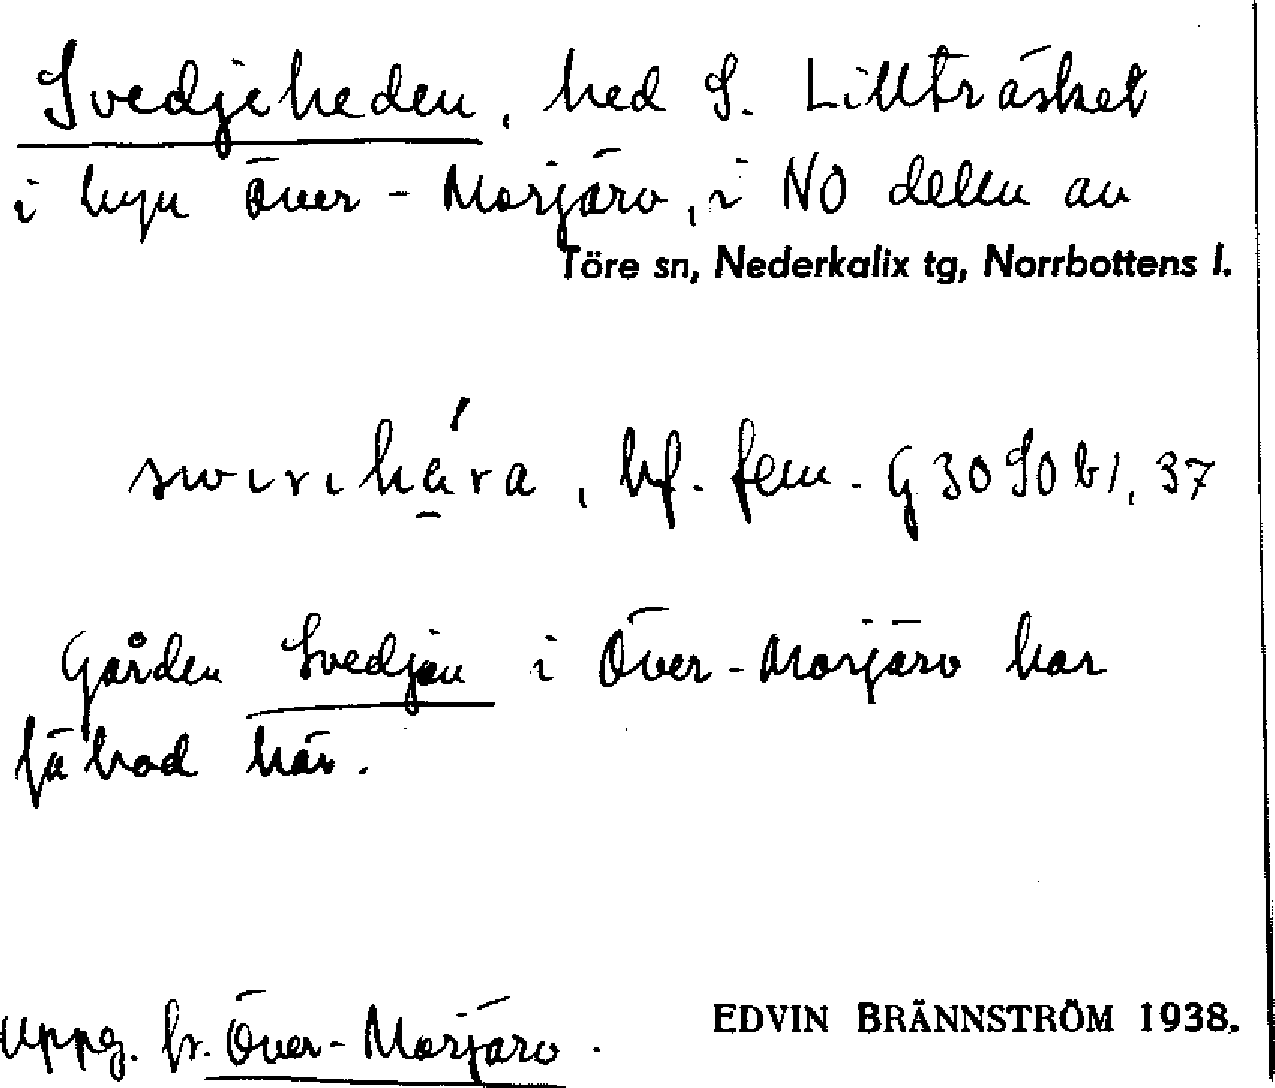 Svedjeheden, hed S. Lillträsket
i byn Över-Morjärv, i NO delen av
Töre sn, Nederkalix tg, Norrbottens l.
bf. fem. G 30 SO b1, 37
Gården Svedjan i Över-Morjärv har
fäbod här.
Uppg. fr. Över-Morjärv.
EDVIN BRÄNNSTRÖM 1938.